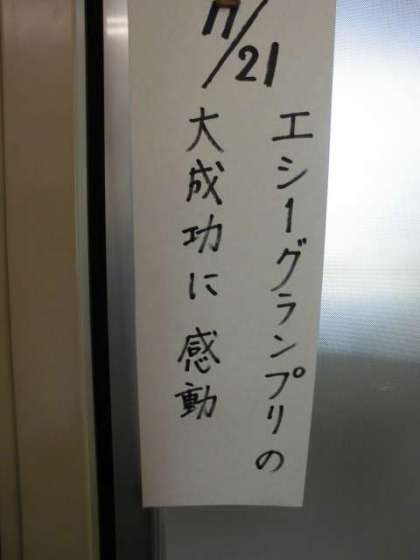 /21
エシ1グランプリの
大成功に感動